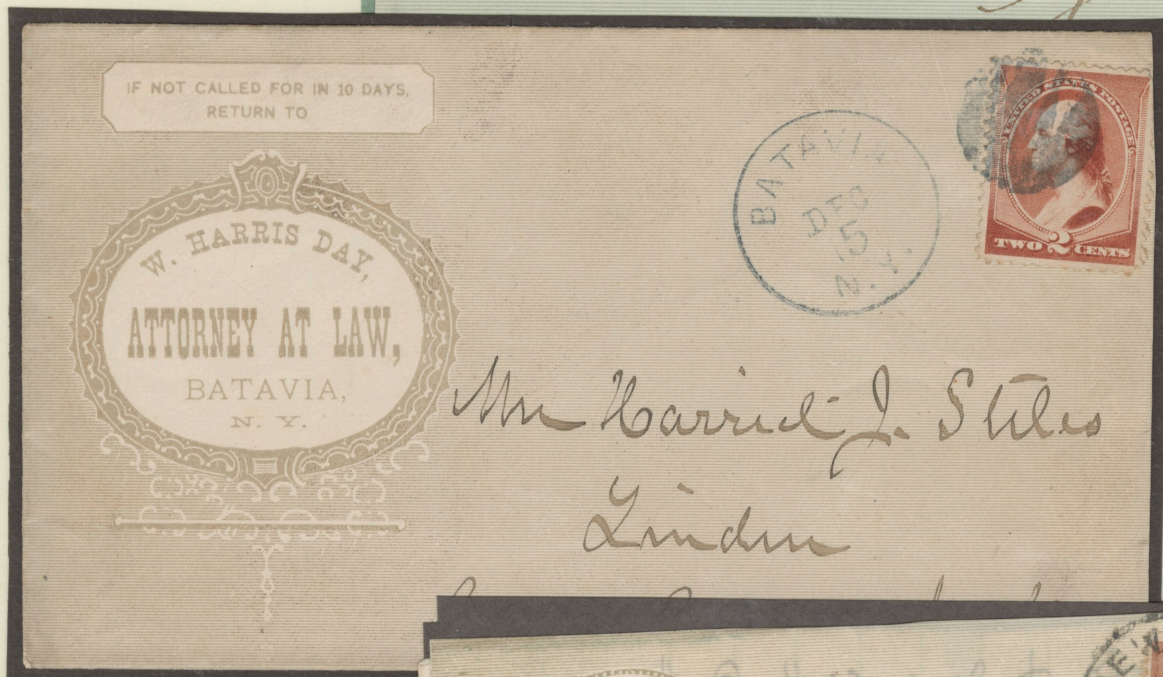 IF NOT CALLED FOR IN 10 DAYS,
RETURN TO
W. HARRIS DAY,
ATTORNEY AT LAW,
BATAVIA,
N. Y.
BATAVIA
DEC
5
N.Y.
UNITED STATES POSTAGE
TWO 2 CENTS
J. Stiles
Linden